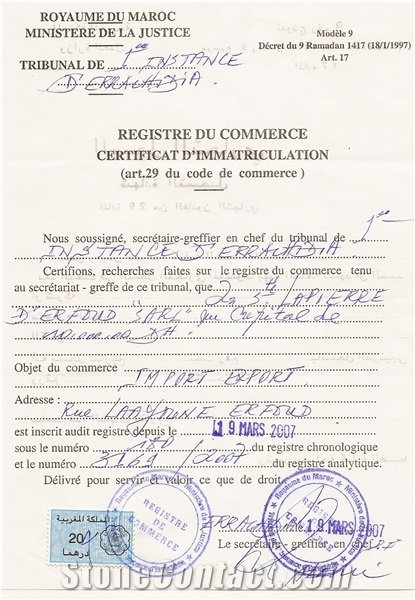 ROYAUME DU MAROC
MINISTERE DE LA JUSTICE
TRIBUNAL DE 1ère INSTANCE
D'ERRACHIDIA
Modèle 9
Décret du 9 Ramadan 1417 (18/1/1997)
Art. 17
REGISTRE DU COMMERCE
CERTIFICAT D'IMMATRICULATION
(art.29 du code de commerce )
Nous soussigné, secrétaire-greffier en chef du tribunal de 1ère
INSTANCE D'ERRACHIDIA
Certifions, recherches faites sur le registre du commerce tenu
au sécrétariat - greffe de ce tribunal, que La Sté LAPIERRE
D'ERFOUD SARL" Capital de
DH.
Objet du commerce IMPORT EXPORT
Adresse :
Rue LAAYOUNE ERFOUD
est inscrit audit registre depuis le 19 MARS 2007
sous le numéro du registre chronologique
et le numéro /2007 du registre analytique.
Délivré pour servir et valoir ce que de droit.
المملكة المغربية
20
درهما
REGISTRE
DE
COMMERCE
Royaume du Maroc
19 MARS 2007
Le secrétaire - greffier en chef
StoneContact.com